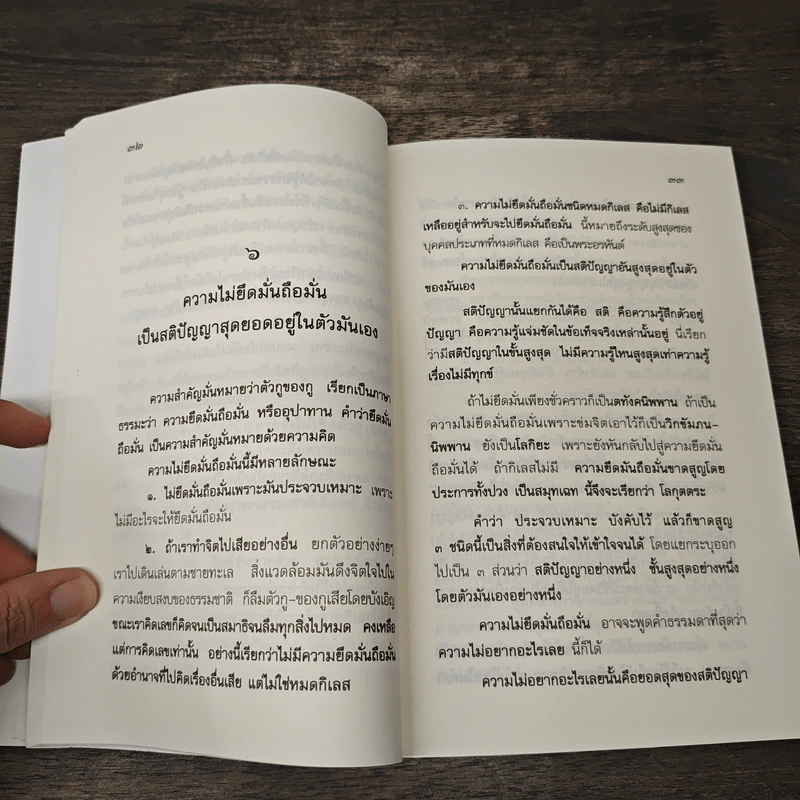 ๓๒
๖
ความไม่ยึดมั่นถือมั่น
เป็นสติปัญญาสุดยอดอยู่ในตัวมันเอง
ความสำคัญมั่นหมายว่าตัวกูของกู เรียกเป็นภาษา
ธรรมะว่า ความยึดมั่นถือมั่น หรืออุปาทาน คำว่ายึดมั่น
ถือมั่น เป็นความสำคัญมั่นหมายด้วยความคิด
ความไม่ยึดมั่นถือมั่นนี้มีหลายลักษณะ
๑. ไม่ยึดมั่นถือมั่นเพราะมันประจวบเหมาะ เพราะ
ไม่มีอะไรจะให้ยึดมั่นถือมั่น
๒. ถ้าเราทำจิตไปเสียอย่างอื่น ยกตัวอย่างง่ายๆ
เราไปเดินเล่นตามชายทะเล สิ่งแวดล้อมมันดึงจิตใจไปใน
ความเงียบสงบของธรรมชาติ ก็ลืมตัวกู-ของกูเสียโดยบังเอิญ
ขณะเราคิดเลขก็คิดจนเป็นสมาธิจนลืมทุกสิ่งไปหมด คงเหลือ
แต่การคิดเลขเท่านั้น อย่างนี้เรียกว่าไม่มีความยึดมั่นถือมั่น
ด้วยอำนาจที่ไปคิดเรื่องอื่นเสีย แต่ไม่ใช่หมดกิเลส
๓๓
๓. ความไม่ยึดมั่นถือมั่นชนิดหมดกิเลส คือไม่มีกิเลส
เหลืออยู่สำหรับจะไปยึดมั่นถือมั่น นี้หมายถึงระดับสูงสุดของ
บุคคลประเภทที่หมดกิเลส คือเป็นพระอรหันต์
ความไม่ยึดมั่นถือมั่นเป็นสติปัญญาอันสูงสุดอยู่ในตัว
ของมันเอง
สติปัญญานั้นแยกกันได้คือ สติ คือความรู้สึกตัวอยู่
ปัญญา คือความรู้แจ่มชัดในข้อเท็จจริงเหล่านั้นอยู่ นี่เรียก
ว่ามีสติปัญญาในขั้นสูงสุด ไม่มีความรู้ไหนสูงสุดเท่าความรู้
เรื่องไม่มีทุกข์
ถ้าไม่ยึดมั่นเพียงชั่วคราวก็เป็นตทังคนิพพาน ถ้าเป็น
ความไม่ยึดมั่นถือมั่นเพราะข่มจิตเอาไว้ก็เป็นวิกขัมภน-
นิพพาน ยังเป็นโลกิยะ เพราะยังหันกลับไปสู่ความยึดมั่น
ถือมั่นได้ ถ้ากิเลสไม่มี ความยึดมั่นถือมั่นขาดสูญโดย
ประการทั้งปวง เป็นสมุทเฉท นี้จึงจะเรียกว่า โลกุตตระ
คำว่า ประจวบเหมาะ บังคับไว้ แล้วก็ขาดสูญ
๓ ชนิดนี้เป็นสิ่งที่ต้องสนใจให้เข้าใจจนได้ โดยแยกระบุออก
ไปเป็น ๓ ส่วนว่า สติปัญญาอย่างหนึ่ง ชั้นสูงสุดอย่างหนึ่ง
โดยตัวมันเองอย่างหนึ่ง
ความไม่ยึดมั่นถือมั่น อาจจะพูดคำธรรมดาที่สุดว่า
ความไม่อยากอะไรเลย นี้ก็ได้
ความไม่อยากอะไรเลยนั้นคือยอดสุดของสติปัญญา